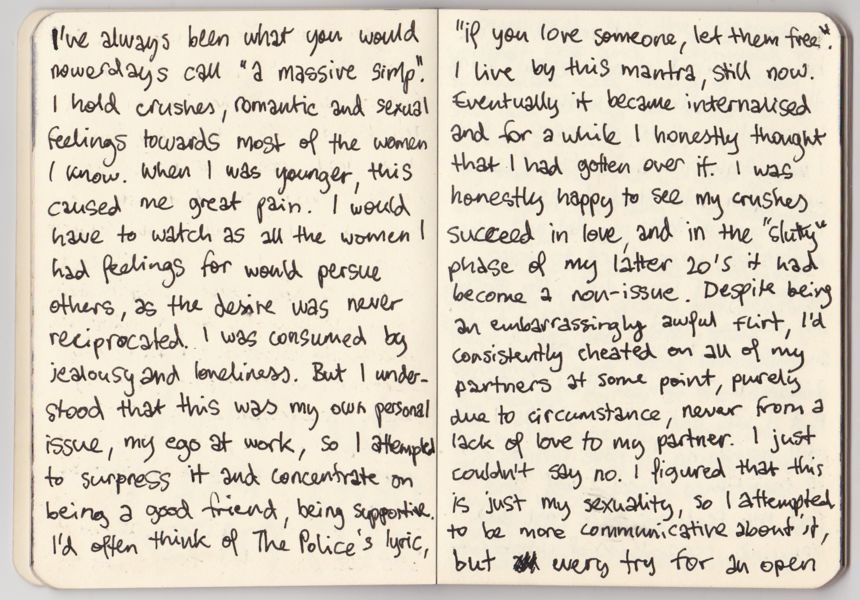 I've always been what you would
nowerdays call "a massive simp".
I hold crushes, romantic and sexual
feelings towards most of the women
I know. When I was younger, this
caused me great pain. I would
have to watch as all the women I
had feelings for would persue
others, as the desire was never
reciprocated. I was consumed by
jealousy and loneliness. But I under-
stood that this was my own personal
issue, my ego at work, so I attempted
to surpress it and concentrate on
being a good friend, being supportive.
I'd often think of The Police's lyric,
"if you love someone, let them free".
I live by this mantra, still now.
Eventually it became internalised
and for a while I honestly thought
that I had gotten over it. I was
honestly happy to see my crushes
succeed in love, and in the "slutty"
phase of my latter 20's it had
become a non-issue. Despite being
an embarrassingly awful flirt, I'd
consistently cheated on all of my
partners at some point, purely
due to circumstance, never from a
lack of love to my partner. I just
couldn't say no. I figured that this
is just my sexuality, so I attempted
to be more communicative about it,
but every try for an open